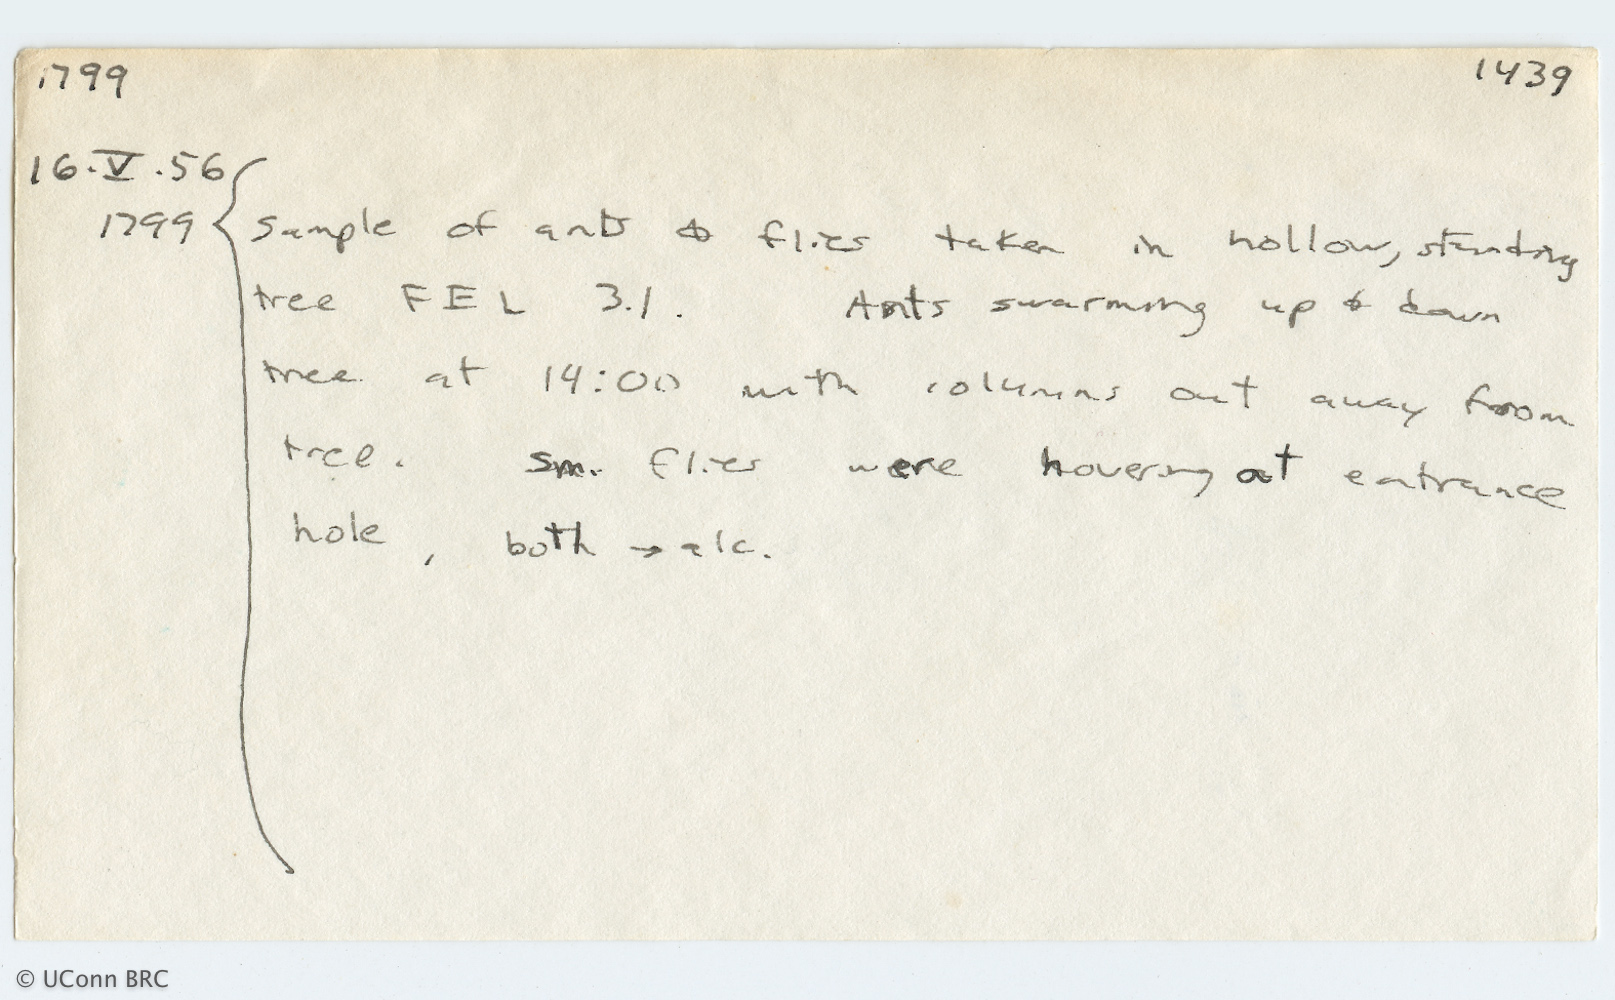 1799 1439
16.V.56
1799 { Sample of ants & flies taken in hollow, standing
tree FEL 3.1. Ants swarming up & down
tree at 14:00 with columns out away from
tree. Sm. flies were hovering at entrance
hole, both → alc.
© UConn BRC